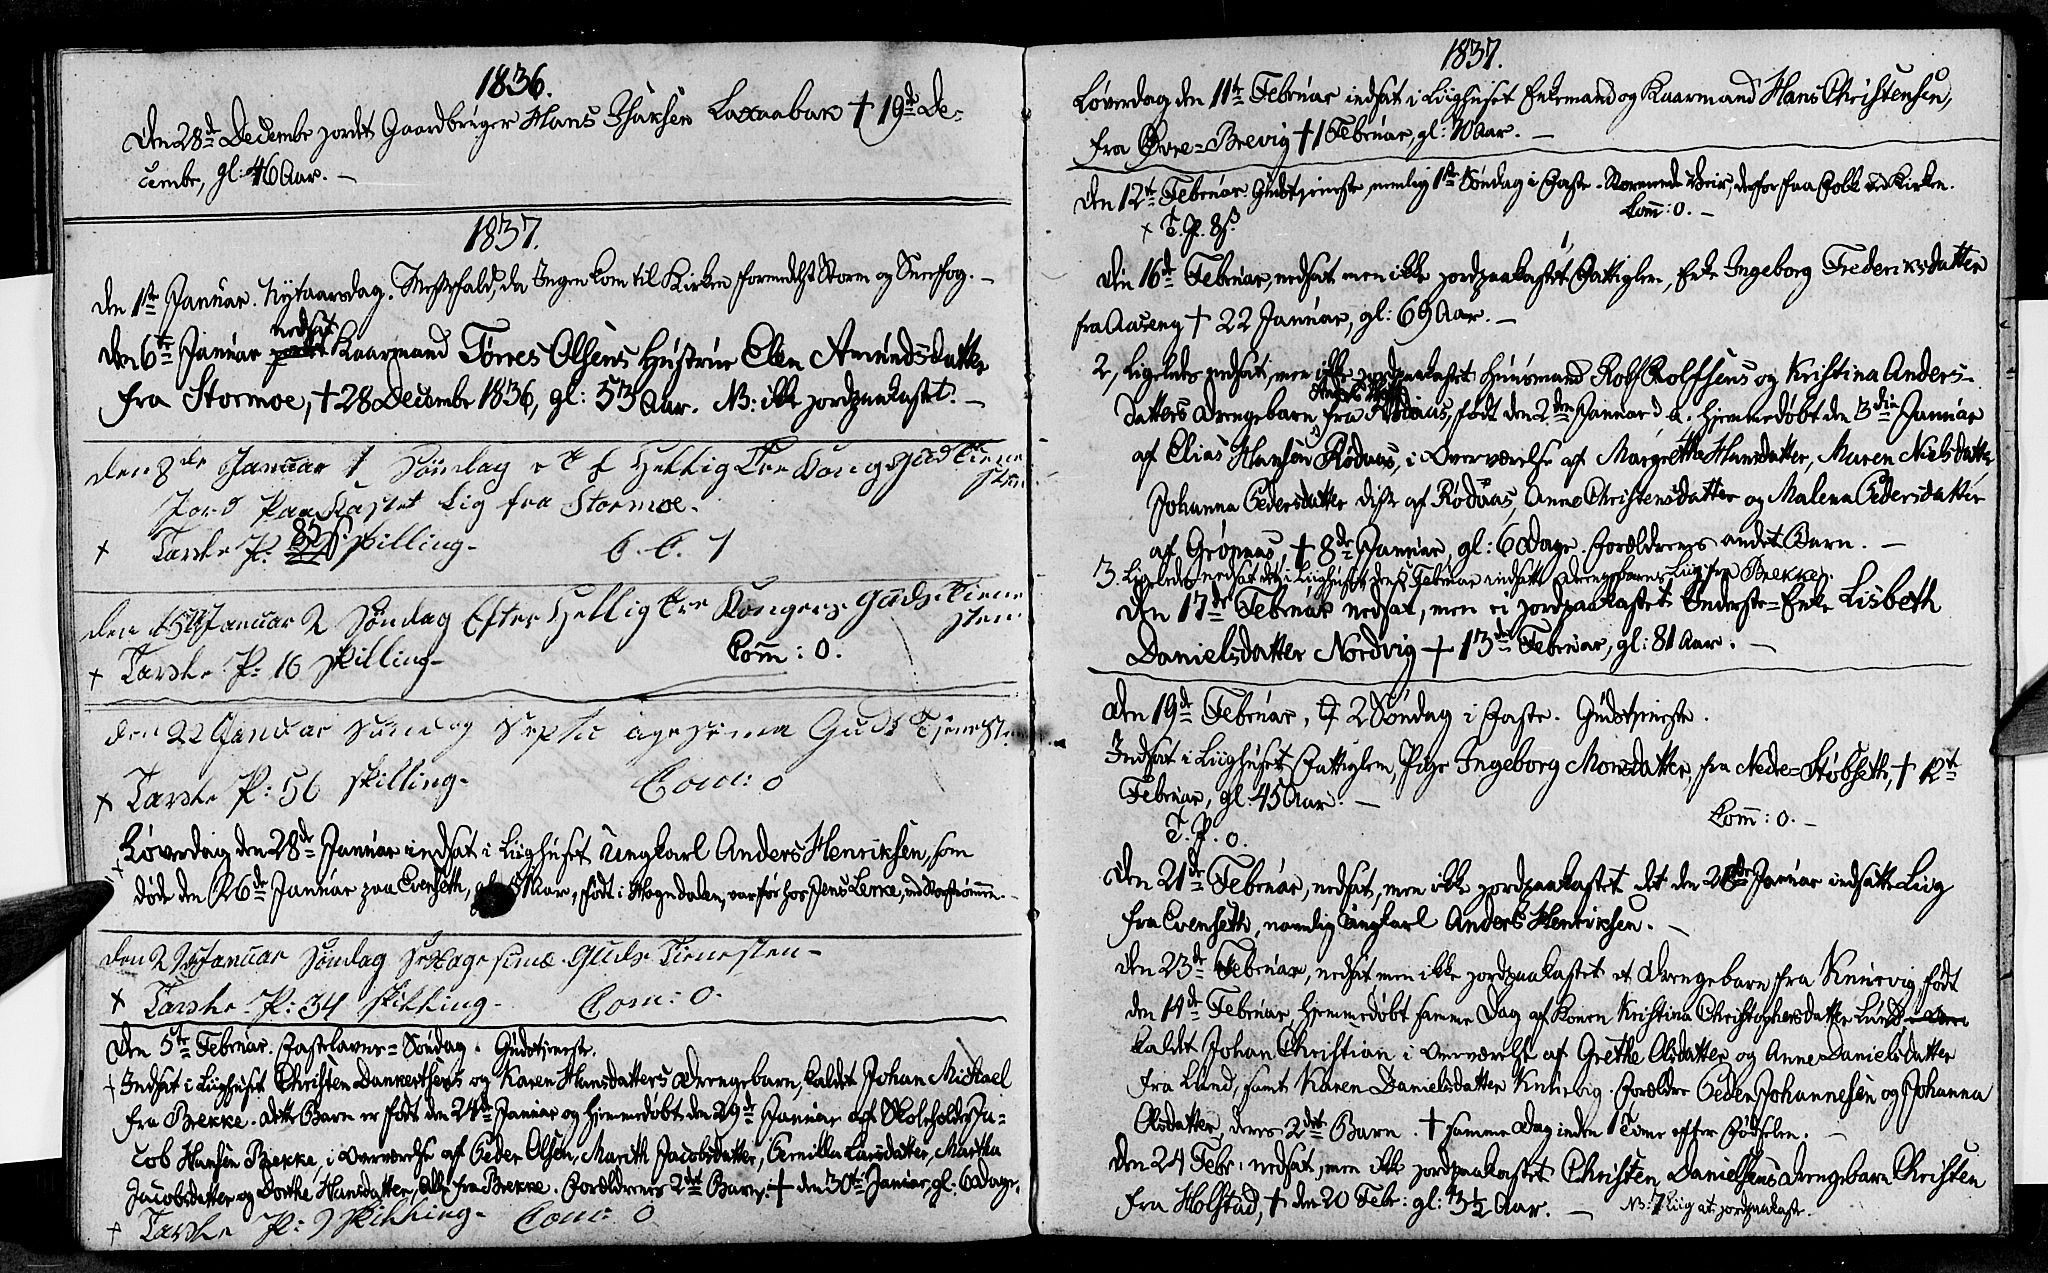 1836.
Den 28de Decembr jordet Gaardbruger Hans Isaksen Laxaabak † 19de De=
cembr, gl: 46 Aar. —
1837.
Den 1ste Januar. Nytaarsdag. Messefald, da Ingen kom til Kirken formedelst Storm og Sneefog. —
nedsat
Den 6te Januar Kaarmand Tørres Olsens Hustrue Elen Amundsdatter
fra Stormoe, † 28 Decembr 1836, gl: 53 Aar. NB: ikke jordpaakastet. —
den 8de Januar 1 Søndag e f Hellig Tre Kong Guds Tiene
sten
Jord Paa Kastet Lig fra Stormoe.
× Tavle P: 83 s. skilling- C. C. 1
den 15 Januar 2 Søndag Efter Hellig Tre Konger Guds Tiene
sten
× Tavle P: 16 skilling- Com: 0.
den 22 Januar Søndag Septu agesima Guds Tjenesten
× Tavle P: 56 skilling- Com: 0
Løverdag den 28de Januar indsat i Liighuset Ungkarl Anders Henriksen, som
døde den 26de Januar paa Evenseth, Aar, født i Hogndalen, var før hos Jens Lerke, ved
den 29 Januar Søndag Sexagesimæ Guds Tienesten-
× Tavle P: 34 skilling- Com: 0.
Den 5te Februar. Fastelavns=Søndag. Gudstjeneste.
† Indsat i Liighuset Christen Dankertsens og Karen Hansdatters Drengebarn, kaldet Johan Mickael
fra Brekke. Dette Barn er født den 24de Januar og hjemmedøbt den 29de Januar af Skoleholder Ja=
cob Hansen Brekke, i Overværelse af Peder Olsen, Marith Jacobsdatter, Pernilla Larsdatter, Martha
Jacobsdatter og Dorthe Hansdatter, alle fra Brekke. Forældrenes 2det Barn. † den 30te Januar, gl: 6 Dage.
× Tavle P: 9 skilling- Com: 0
1837.
Løverdag den 11te Februar indsat i Liighuset Enkemand og Kaarmand Hans Christensen,
fra Øvre=Brevig † 1 Februar, gl: 70 Aar. —
Den 12te Februar Gudstjeneste, nemlig 1ste Søndag i Faste. Stormende Veir, derfor faa Folk ved Kirken.
× T. P. 8 s. Com: 0. —
1,
Den 16de Februar, nedsat men ikke jordpaakastet Fattiglem, Enke Ingeborg Frederiksdatter
fra Aaseng † 22 Januar, gl: 69 Aar. —
2, Ligeledes nedsat, men ikke jordpaakastet Huusmand Rolf Rolfsens og Kristina Anders-
datters Drengebarn fra Rødaas, født den 2den Januar d. A. hjemmedøbt den 3die Januar
af Elias Hansen Rødaas, i Overværelse af Margrethe Hansdatter, Maren Nielsdatter
Johanna Pedersdatter disse af Rødaas, Anne Christensdatter og Malena Pedersdatter
af Grønnaas, † 8de Januar, gl: 6 Dage. Forældrenes andet Barn. —
3. Ligeledes nedsat det i Liighuset den 5 Februar indsatte Drengebarns Liig fra Brekke.
Den 17de Februar nedsat, men ei jordpaakastet Inderste=Enke Lisbeth
Danielsdatter Nordvig † 13de Februar, gl: 81 Aar. —
Den 19de Februar, 2 Søndag i Faste. Gudstjeneste.
Indsat i Liighuset Fattiglem, Pige Ingeborg Monsdatter, fra Nedre=Støbseth, † 12te
Februar, gl: 45 Aar. —
T. P. 0 Com: 0. —
Den 21de Februar, nedsat, men ikke jordpaakastet det den 28de Januar indsatte Liig
fra Evenseth, namlig Ungkarl Anders Henriksen. —
Den 23de Februar, nedsat men ikke jordpaakastet et Drengebarn fra Knutvig, født
den 14de Februar, hjemmedøbt samme Dag af Konen Kristina Christophersdatter Lund
kaldt Johan Christian i Overværelse af Grethe Olsdatter og Anne Danielsdatter
fra Lund, samt Karen Danielsdatter Knutvig. Forældre Peder Johannesen og Johanna
Olsdatter, deres 2det Barn. † samme Dag inden 1 Time efter Fødselen. —
Den 24 Febr: nedsat, men ikke jordpaakastet Christen Danielsens Drengebarn Christen
fra Holstad, † den 20 Febr: gl: 3½ Aar. — NB: 7 Liig at jordpaakaste.